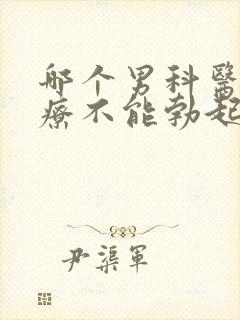 哪个男科醫
療不能勃起
尹渠軍